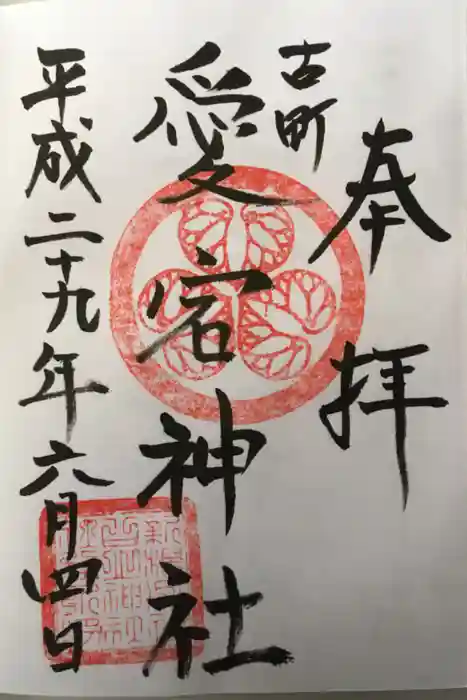 奉拝
古町
愛宕神社
平成二十九年六月四日